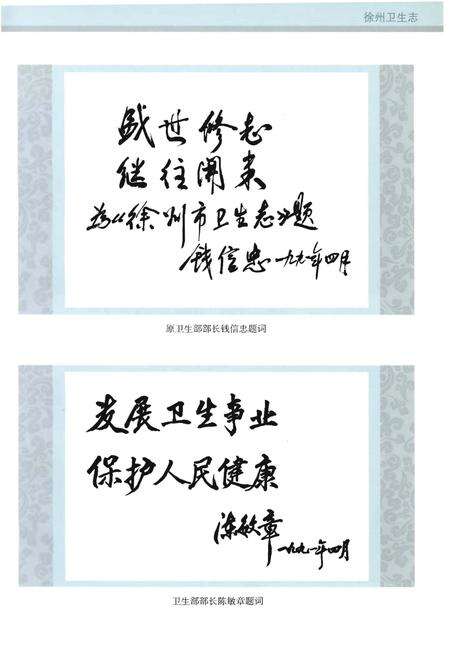 徐州卫生志
盛世修志
继往開来
为《徐州市卫生志》题
钱信忠 一九九一年四月
原卫生部部长钱信忠题词
发展卫生事业
保护人民健康
陈敏章
一九九一年四月
卫生部部长陈敏章题词